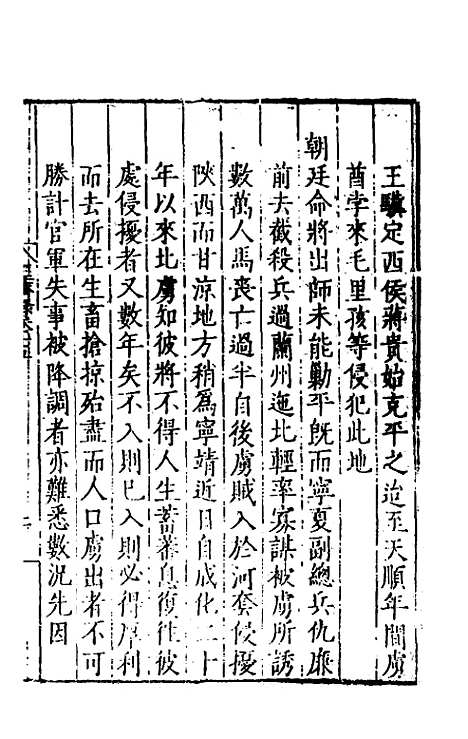 王驥定西侯蔣貴始克平之迨至天順年間虜
酋孛來毛里孩等侵犯此地
朝廷命將出師未能勦平旣而寧夏副總兵仇廉
前去截殺兵過蘭州迤北輕率寡謀被虜所誘
數萬人馬喪亡過半自後虜賊入於河套侵擾
陜西而甘涼地方稍爲寧靖近日自成化二十
年以來北虜知彼將不得人生蓄蕃息復往彼
處侵擾者又數年矣不入則已入則必得厚利
而去所在生畜搶掠殆盡而人口虜出者不可
勝計官軍失事被降調者亦難悉數況先因